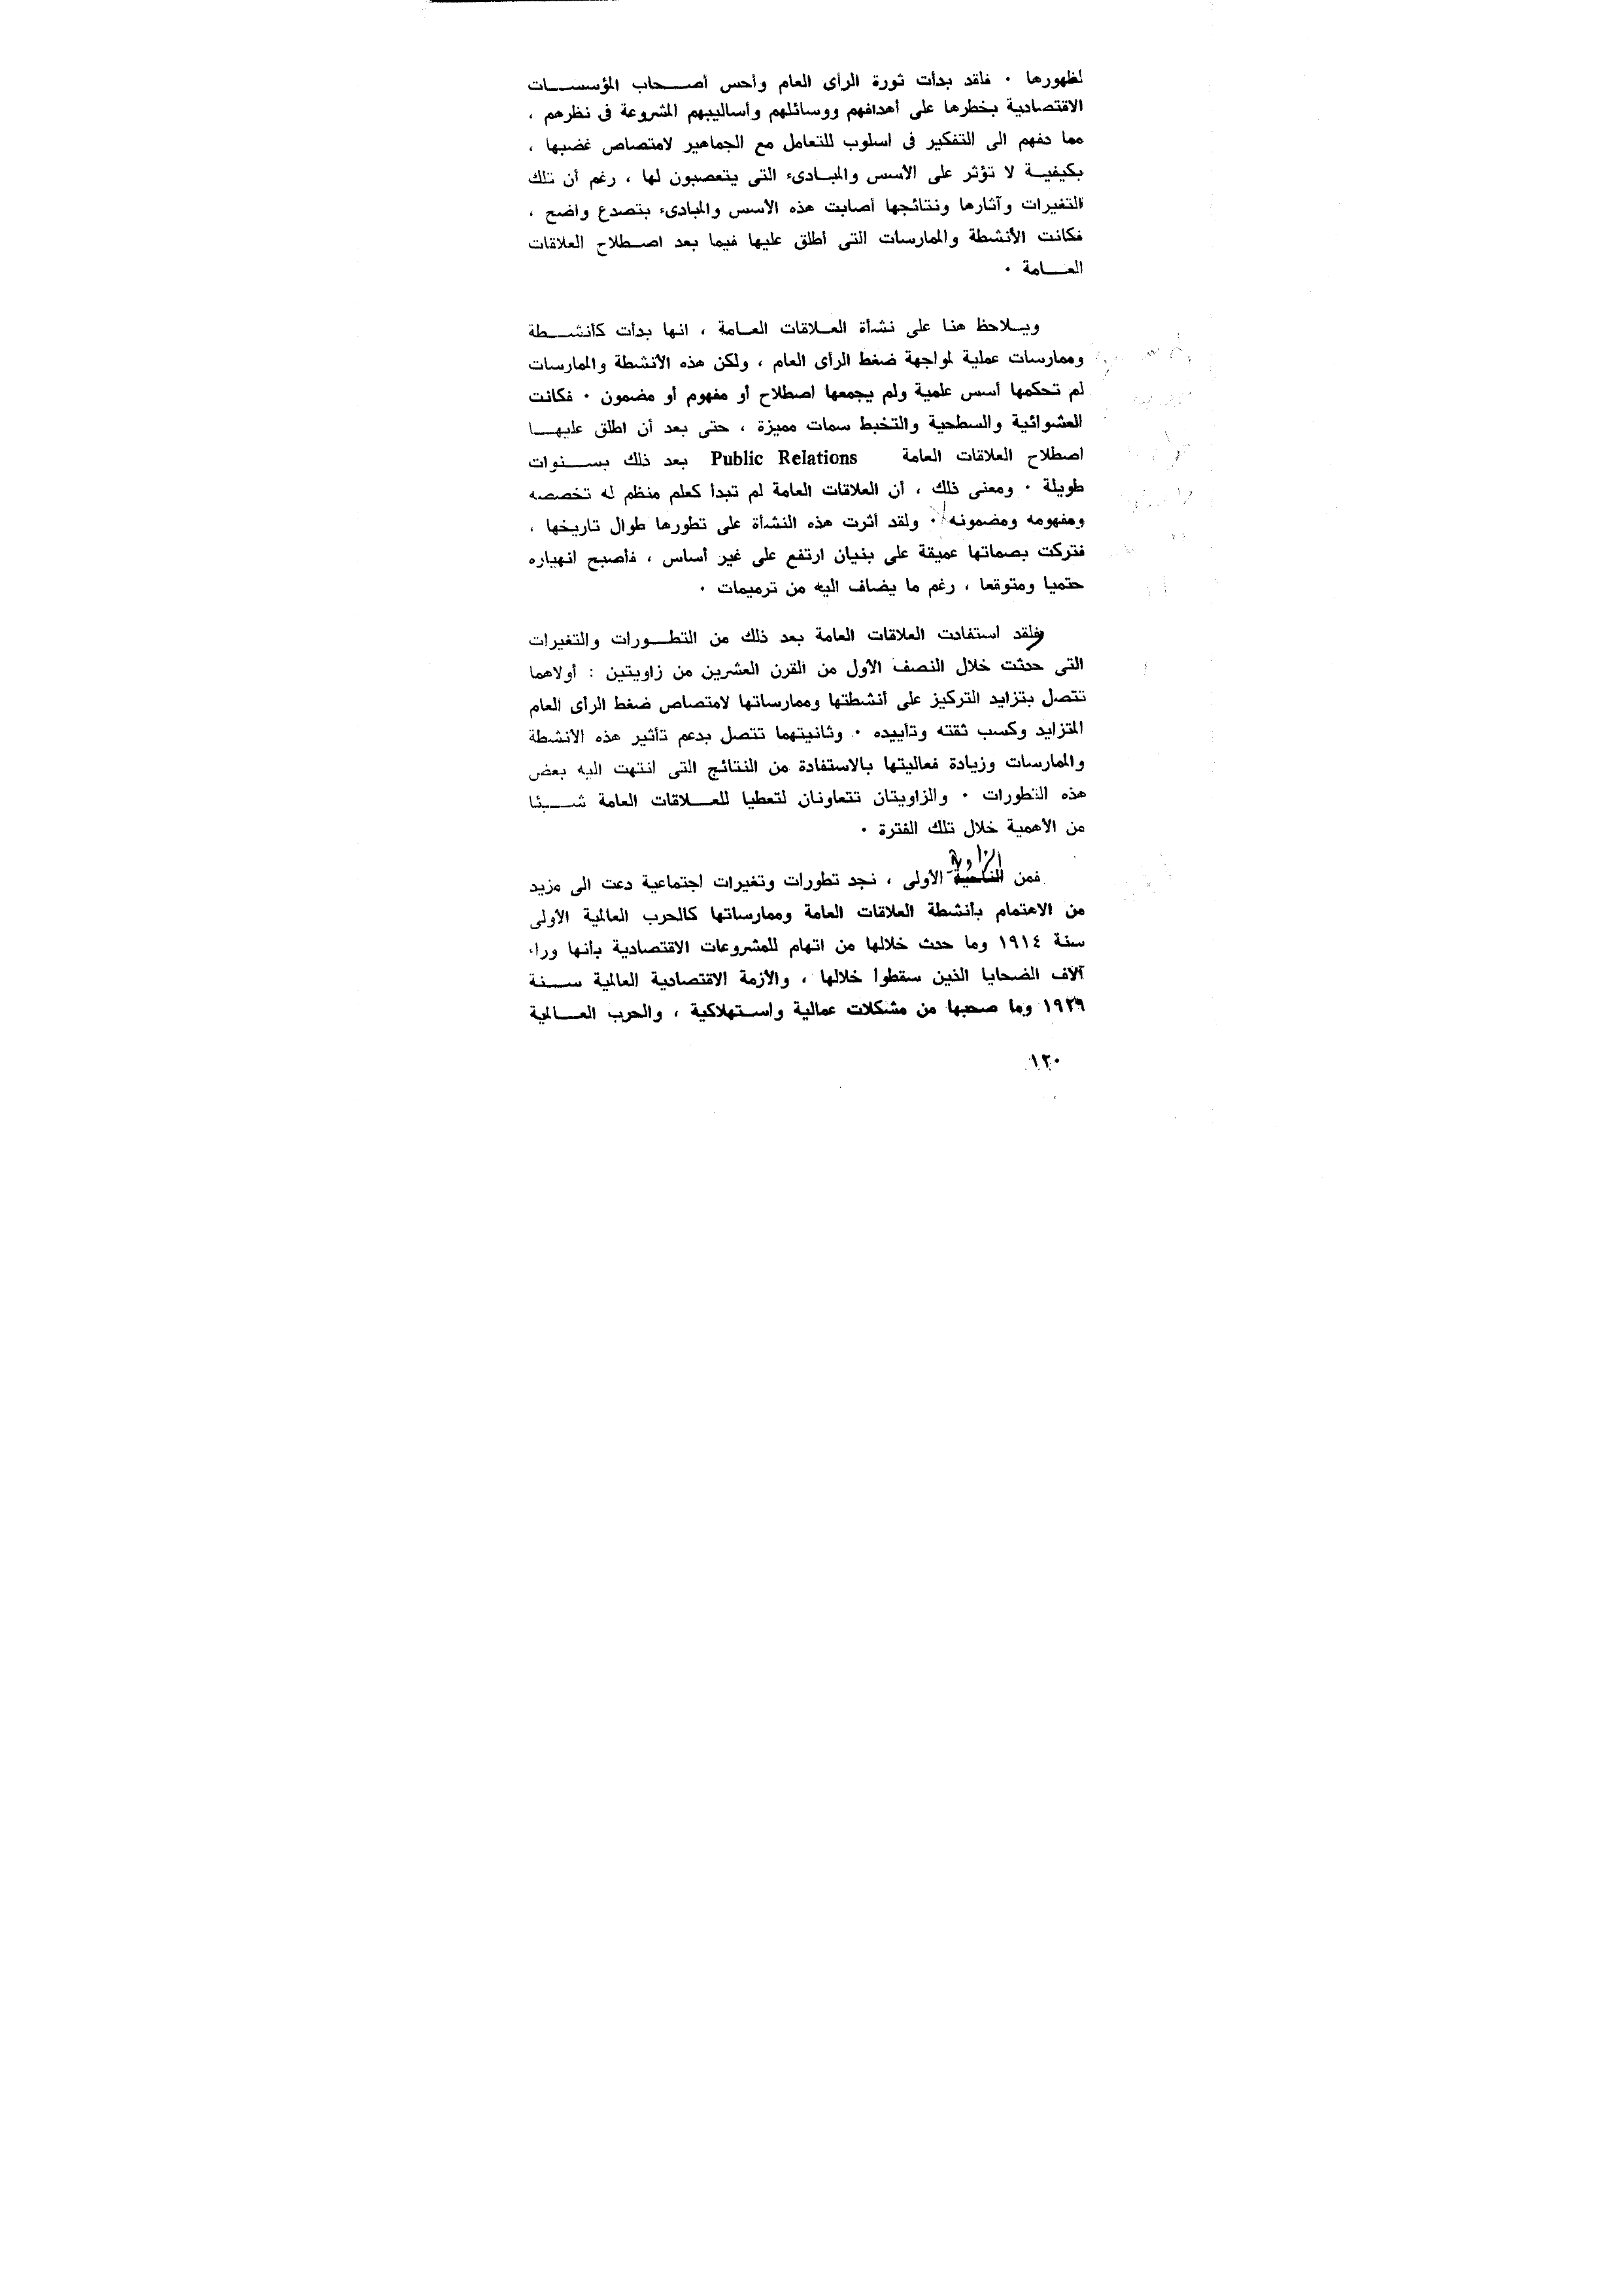 لظهورها ٠ فلقد بدأت ثورة الرأى العام وأحس أصحاب المؤسسات
الاقتصادية بخطرها على أهدافهم ووسائلهم وأساليبهم المشروعة فى نظرهم ،
مما دفهم الى التفكير فى اسلوب للتعامل مع الجماهير لامتصاص غضبها ،
بكيفية لا تؤثر على الأسس والمبادىء التى يتعصبون لها ، رغم أن تلك
التغيرات وآثارها ونتائجها أصابت هذه الأسس والمبادىء بتصدع واضح ،
فكانت الأنشطة والممارسات التى أطلق عليها فيما بعد اصطلاح العلاقات
العامة ٠
ويلاحظ هنا على نشأة العلاقات العامة ، انها بدأت كأنشطة
وممارسات عملية لمواجهة ضغط الرأى العام ، ولكن هذه الأنشطة والممارسات
لم تحكمها أسس علمية ولم يجمعها اصطلاح أو مفهوم أو مضمون ٠ فكانت
العشوائية والسطحية والتخبط سمات مميزة ، حتى بعد أن اطلق عليها
اصطلاح العلاقات العامة Public Relations بعد ذلك بسنوات
طويلة ٠ ومعنى ذلك ، أن العلاقات العامة لم تبدأ كعلم منظم له تخصصه
ومفهومه ومضمونه ٠ ولقد أثرت هذه النشأة على تطورها طوال تاريخها ،
فتركت بصماتها عميقة على بنيان ارتفع على غير أساس ، فأصبح انهياره
حتميا ومتوقعا ، رغم ما يضاف اليه من ترميمات ٠
ولقد استفادت العلاقات العامة بعد ذلك من التطورات والتغيرات
التى حدثت خلال النصف الأول من القرن العشرين من زاويتين : أولاهما
تتصل بتزايد التركيز على أنشطتها وممارساتها لامتصاص ضغط الرأى العام
المتزايد وكسب ثقته وتأييده ٠ وثانيتهما تتصل بدعم تأثير هذه الأنشطة
والممارسات وزيادة فعاليتها بالاستفادة من النتائج التى انتهت اليه بعض
هذه التطورات ٠ والزاويتان تتعاونان لتعطيا للعلاقات العامة شيئا
من الأهمية خلال تلك الفترة ٠
الزاوية
فمن الناحية الأولى ، نجد تطورات وتغيرات اجتماعية دعت الى مزيد
من الاهتمام بأنشطة العلاقات العامة وممارساتها كالحرب العالمية الأولى
سنة ١٩١٤ وما حدث خلالها من اتهام للمشروعات الاقتصادية بأنها وراء
آلاف الضحايا الذين سقطوا خلالها ، والأزمة الاقتصادية العالمية سنة
١٩٢٩ وما صحبها من مشكلات عمالية واستهلاكية ، والحرب العالمية
١٢٠